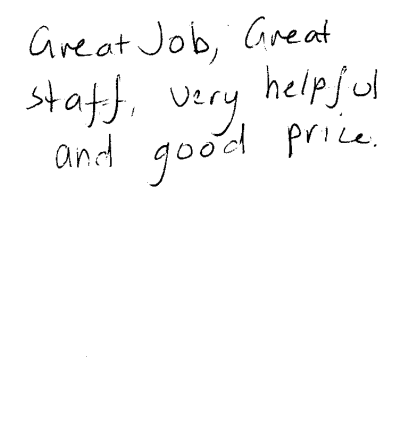 Great Job, Great
staff, very helpful
and good price.